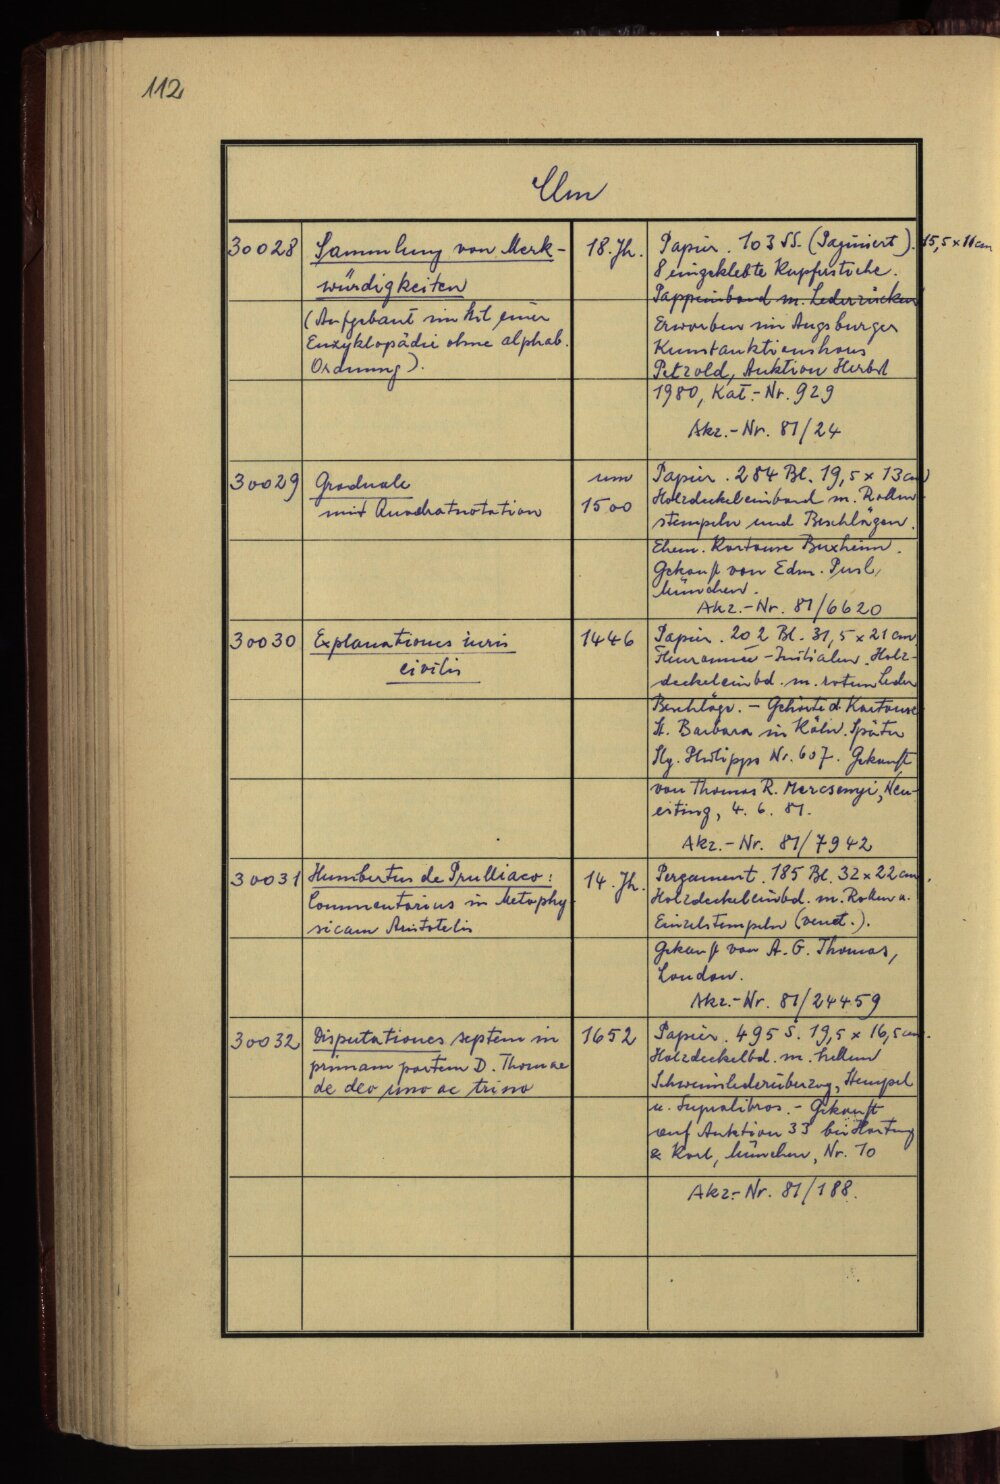 112
Clm
30028 Sammlung von Merk-
würdigkeiten
(Aufgebaut im Stil einer
Enzyklopädie ohne alphab.
Ordnung).
18. Jh.
Papier. 103 SS. (Paginiert). 15,5 x 11 cm
8 eingeklebte Kupferstiche.
Pappeinband m. Lederrücken
Erworben im Augsburger
Kunstauktionshaus
Petzold, Auktion Herbst
1980, Kat.-Nr. 929
Akz.-Nr. 81/24
30029 Graduale
mit Quadratnotation
um
1500
Papier. 284 Bl. 19,5 x 13 cm
Holzdeckeleinband m. Rollen-
stempeln und Beschlägen.
Ehem. Kartause Buxheim.
Gekauft von Edm.
München.
Akz.-Nr. 81/6620
30030 Explanationes iuris
civilis
1446
Papier. 202 Bl. 31,5 x 21 cm
Fleuronnée-Initialen. Holz-
deckeleinbd. m. rotem Leder
Beschläge. - Gehörte d. Kartause
St. Barbara in Köln. Später
Slg. Phillipps Nr. 607. Gekauft
von Thomas R. Mercsenyi, Neu-
ötting, 4. 6. 81.
Akz.-Nr. 81/7942
30031 Humbertus de Prulliaco:
Commentarius in Metaphy-
sicam Aristotelis
14. Jh.
Pergament. 185 Bl. 32 x 22 cm.
Holzdeckeleinbd. m. Rollen u.
Einzelstempeln (venet.).
Gekauft von A. G. Thomas,
London.
Akz.-Nr. 81/24459
30032 Disputationes septem in
primam partem D. Thomae
de deo uno ac trino
1652
Papier. 495 S. 19,5 x 16,5 cm.
Holzdeckelbd. m. hellem
Schweinslederüberzug, Stempel
u. Supralibros. - Gekauft
auf Auktion 33 bei Hartung
& Karl, München, Nr. 10
Akz.-Nr. 81/188.